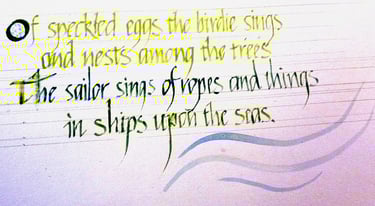 Of speckled eggs the birdie sings
and nests among the trees
The sailor sings of ropes and things
in ships upon the seas.